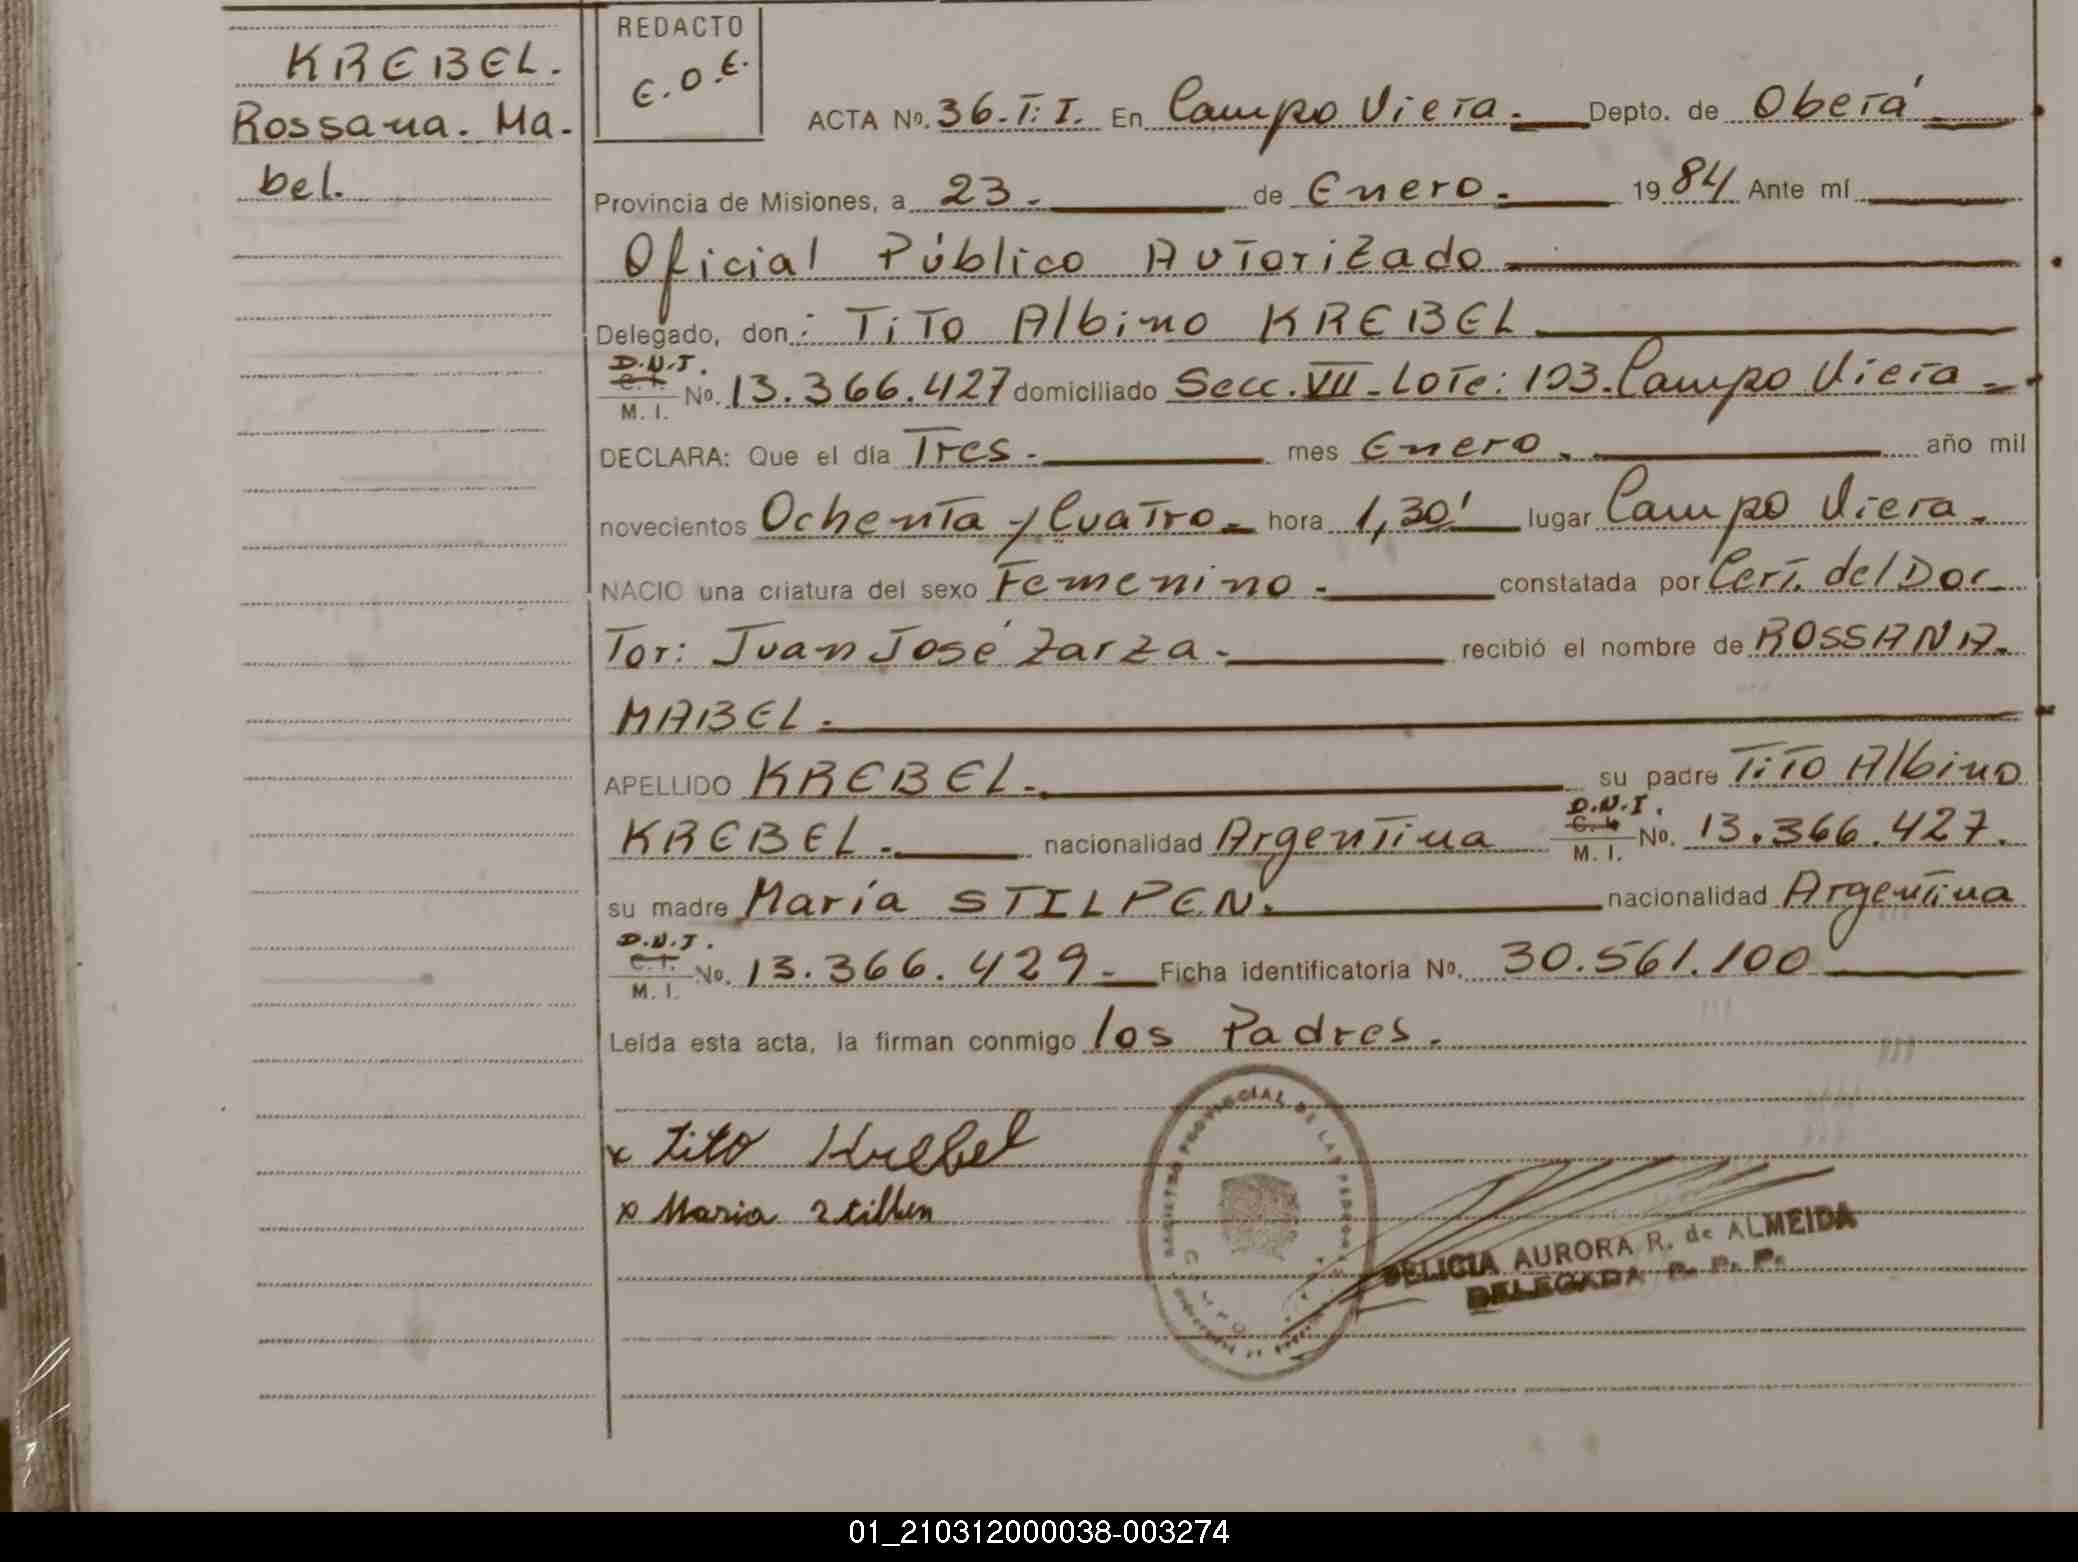 KREBEL.
Rossana. Ma-
bel.
REDACTO
E.O.E.
ACTA Nº. 36.T: I. En Campo Viera. Depto. de Oberá
Provincia de Misiones, a 23. de Enero. 1984 Ante mí
Oficial Público Autorizado
Delegado, don: Tito Albino KREBEL
D.N.I.
C.I.
M. I.
Nº. 13.366.427 domiciliado Secc. VII - Lote: 103. Campo Viera
DECLARA: Que el día Tres. mes Enero. año mil
novecientos Ochenta y Cuatro. hora 1,30' lugar Campo Viera.
NACIO una criatura del sexo Femenino. constatada por Cert. del Doc
Tor: Juan José Zarza. recibió el nombre de ROSSANA.
MABEL.
APELLIDO KREBEL. su padre Tito Albino
KREBEL. nacionalidad Argentina D.N.I. C.I. M. I. Nº. 13.366.427.
su madre María STILPEN. nacionalidad Argentina
D.N.I.
C.I.
M. I.
Nº. 13.366.429. Ficha identificatoria Nº. 30.561.100
Leída esta acta, la firman conmigo los Padres.
x Tito Krebel
x Maria Stilben
REGISTRO PROVINCIAL DE LAS PERSONAS
DELICIA AURORA R. de ALMEIDA
DELEGADA R. P. P.
01_210312000038-003274